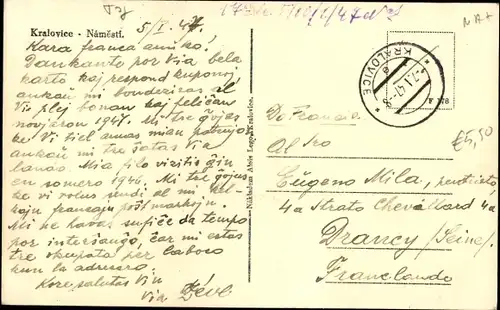 Kralovice - Náměstí.
5/I. 47.
Kara franca amiko!
Dankante por Via bela
karto kaj respond kuponoj
ankaŭ mi bondeziras al
Vi plej bonan kaj feliĉan
novjaron 1947. Mi tre ĝojas
ke Vi tiel amas mian patrujo
ankaŭ mi tre ŝatas Via
lando. Mia filo vizitis ĝin
en somero 1946. Mi tre ĝojus
ke vi volus sendi al mi
kajn francajn poŝtmarkojn.
Mi ne havas sufiĉe da tempo
por interŝanĝo, ĉar mi estas
tre okupata per laboro
kun la adreso.
Kore salutas Vin
Via
Nákladem Aloise Legát, Kralovice.
KRALOVICE
-7.I.47.-8
F 178
£5,50
Al Sro
Eugeno Mila,
4a strato Chevillard 4a
Drancy /Seine/
Franclando